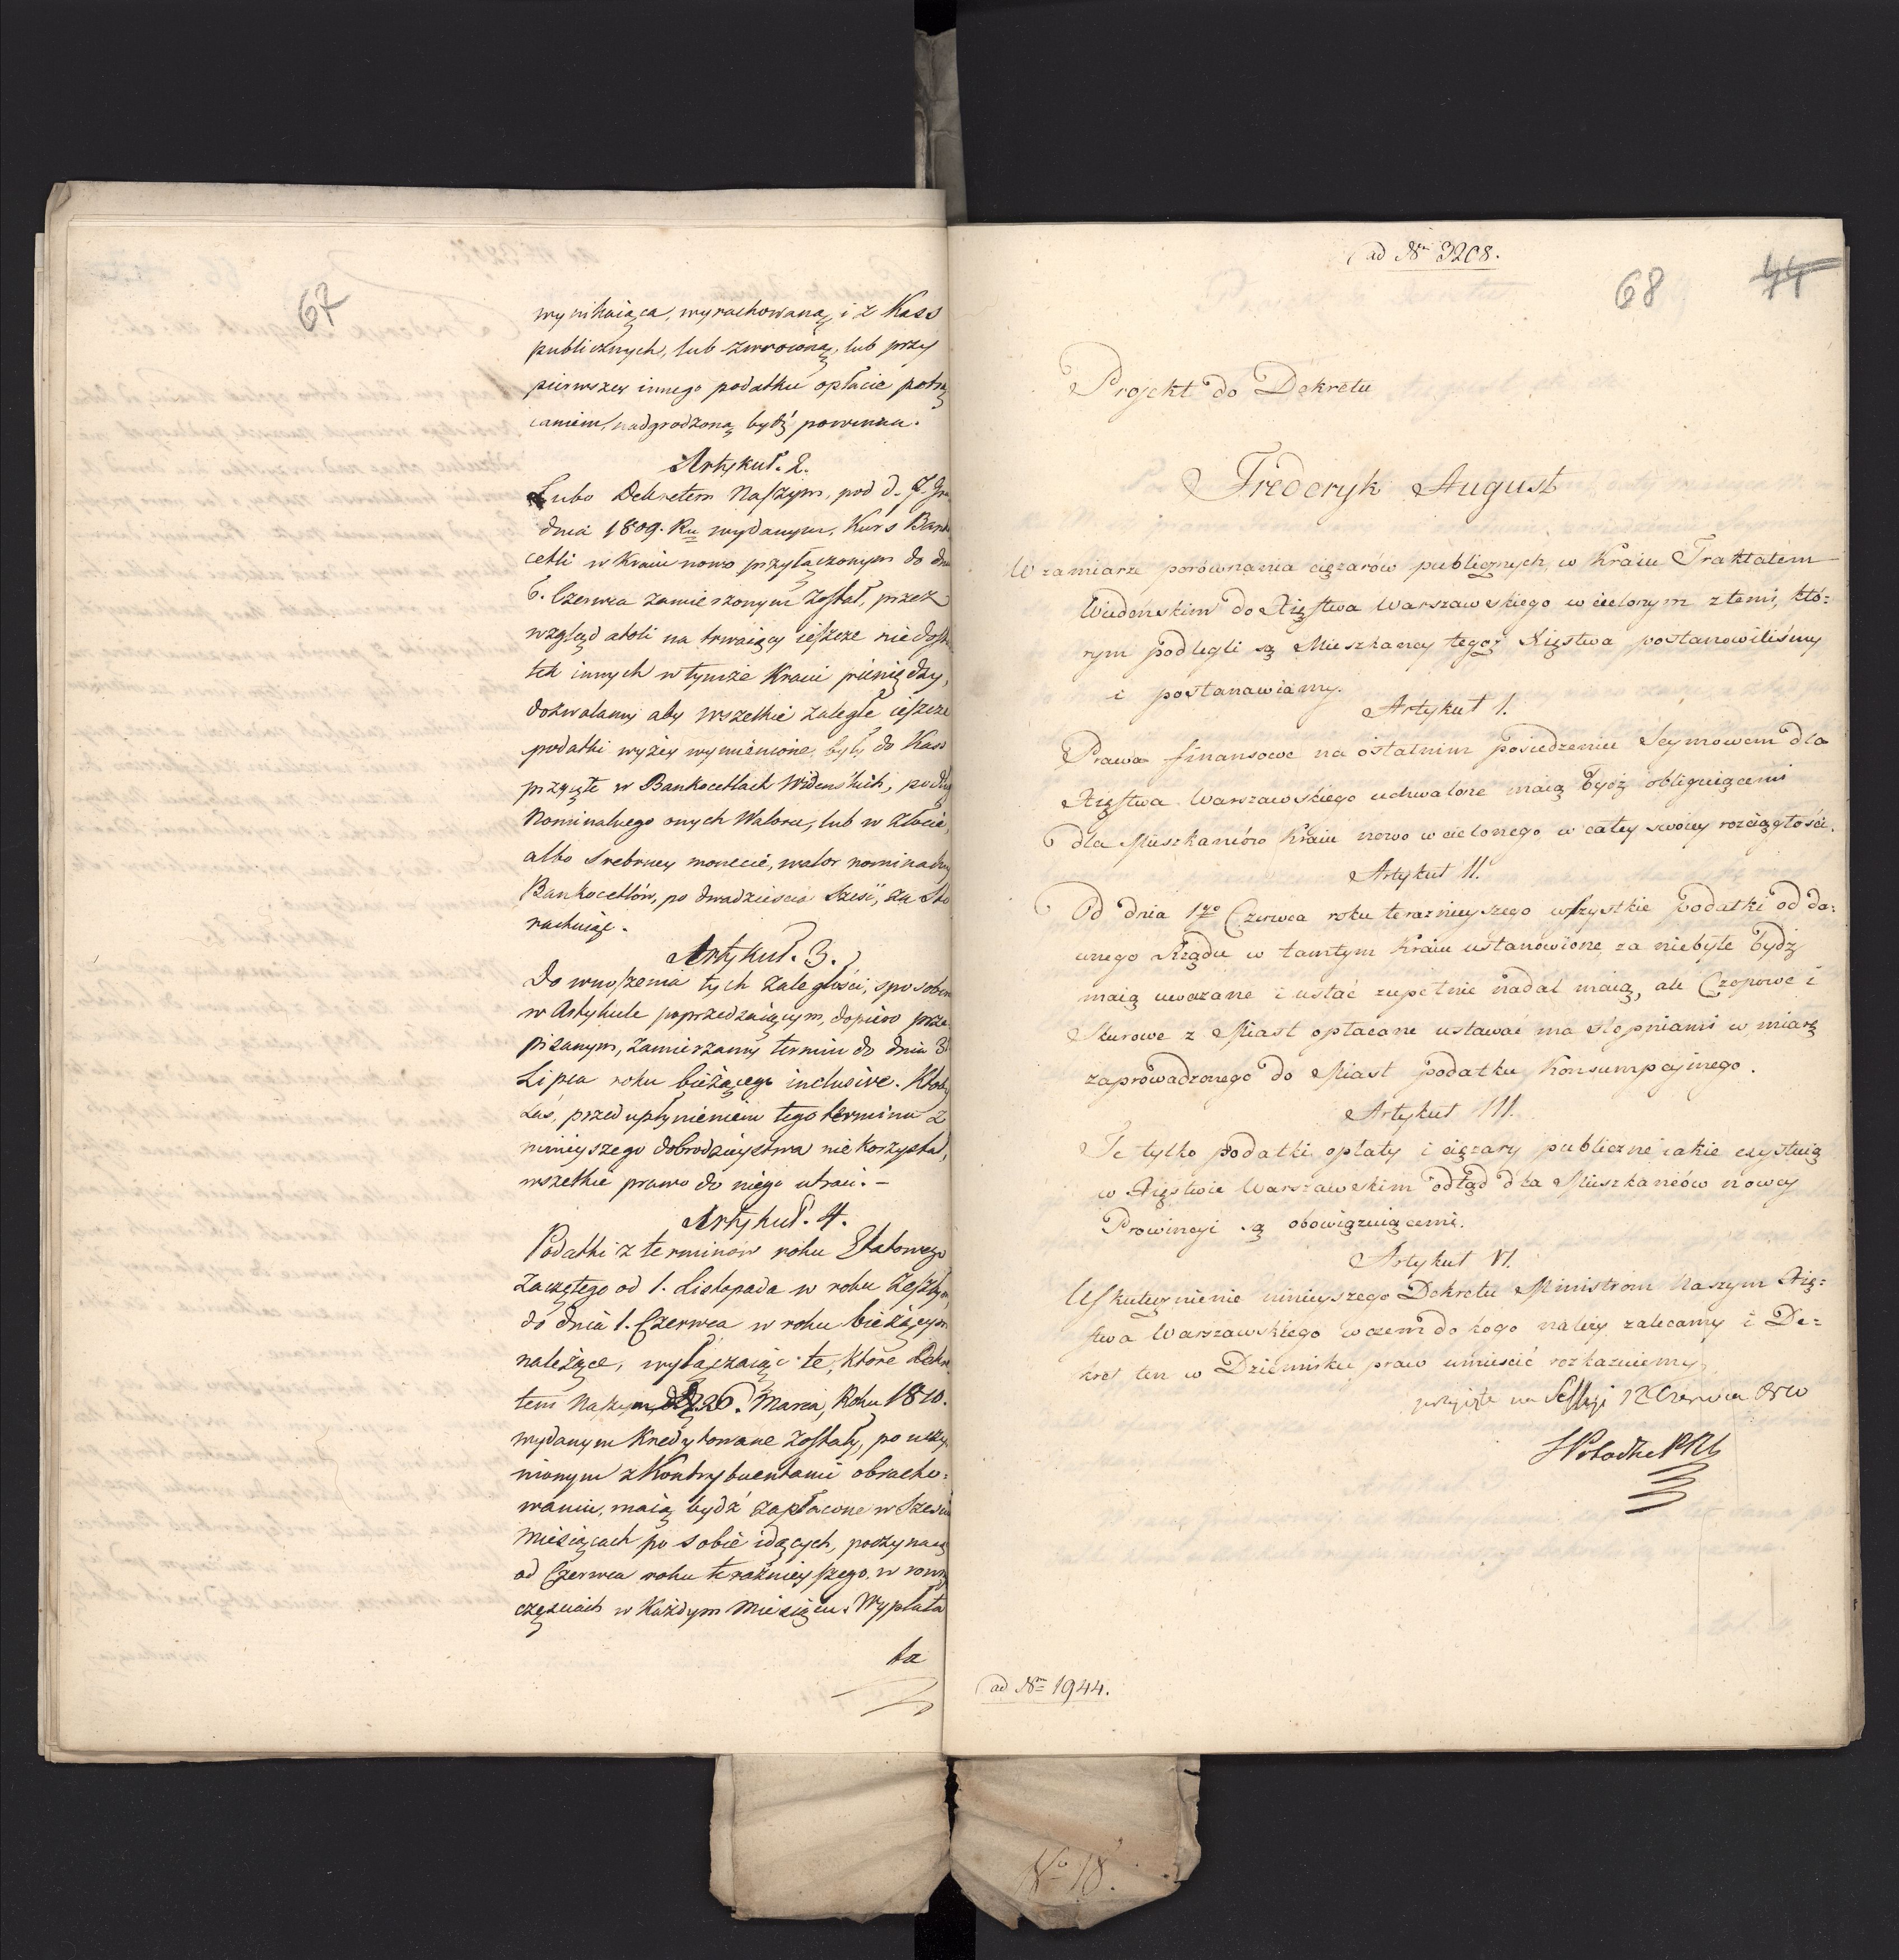 67
wynikaiąca, wyrachowaną i z Kass
publicznych, lub zwróconą, lub przy
pierwszey innego podatku opłacie potrą
caniem, nadgrodzoną bydź powinna.
Artykuł. 2.
Lubo Dekretem Naszym, pod d. 7 Gru
dnia 1809. Ru wydanym, Kurs Banko
cetli w Kraiu nowo przyłączonym do dnia
6. Czerwca zamierzonym został, przez
wzgląd atoli na trwaiący ieszcze niedosta
tek innych w tymże Kraiu pieniędzy,
dozwalamy aby wszelkie zaległe ieszcze
podatki wyżey wymienione, były do Kass
przyięte w Bankocetlach Wideńskich, podług
Nominalnego onych Waloru, lub w złocie,
albo srebrney monecie, walor nominalny
Bankocetlów, po dwadzieścia sześć, za sto
rachuiąc.
Artykuł. 3.
Do wnoszenia tych zaległości, sposobem
w Artykule poprzedzaiącym, dopiero prze
pisanym, zamierzamy termin do dnia 31
Lipca roku bieżącego inclusive. Ktoby
zaś, przed upłynieniem tego terminu z
ninieyszego dobrodzieystwa nie korzystał,
wszelkie prawo do niego utraci. –
Artykuł. 4.
Podatki z terminów roku Etatowego
zaczętego od 1. Listopada w roku zeszłym,
do dnia 1. Czerwca w roku bieżącym
należące, wyłączaiąc te, które Dekre
tem Naszym 26. Marca, Roku 1810.
wydanym Kredytowane zostały, po uczy
nionym z Kontrybuentami obracho=
waniu, maią bydź zapłacone w sześciu
Miesiącach po sobie idących, poczynaiąc
od Czerwca roku teraźnieyszego, w równych
częściach w Każdym Miesiącu. Wypłata
ta
ad Nm 3208.
68 44
Projekt do Dekretu
Frideryk August
W zamiarze porównania ciężarów publicznych w Kraiu Traktatem
Wiedeńskim do Xięstwa Warszawskiego wcielonym z temi, któ=
rym podlegli są Mieszkańcy tegoż Xięstwa postanowiliśmy
i postanawiamy.
Artykuł I.
Prawa finansowe na ostatnim posiedzeniu Seymowem dla
Xięstwa Warszawskiego uchwalone maią bydź obliguiącemi
dla Mieszkańców Kraiu nowo wcielonego w całey swoiey rozciągłości.
Artykuł II.
Od dnia 1go Czerwca roku teraznieyszego wszystkie podatki od da:
wnego Rządu w tamtym Kraiu ustanowione, za niebyłe bydź
maią uważane i ustać zupełnie nadal maią, ale Czopowe i
Skurowe z Miast opłacane ustawać ma stopniami w miarę
zaprowadzonego do Miast podatku Konsumpcyinego.
Artykuł III.
Te tylko podatki opłaty i ciężary publiczne iakie exystuią
w Xięstwie Warszawskim odtąd dla Mieszkańców nowey
Prowincyi są obowiązuiącemi.
Artykuł VI.
Uskutecznienie ninieyszego Dekretu Ministrom Naszym Xię=
stwa Warszawskiego w czem do kogo należy zalecamy i De=
kret ten w Dzienniku praw umieścić rozkazuiemy.
przyięte na Sessyi 12 Czerwca 1810
ad Nm 1944.
No 18.